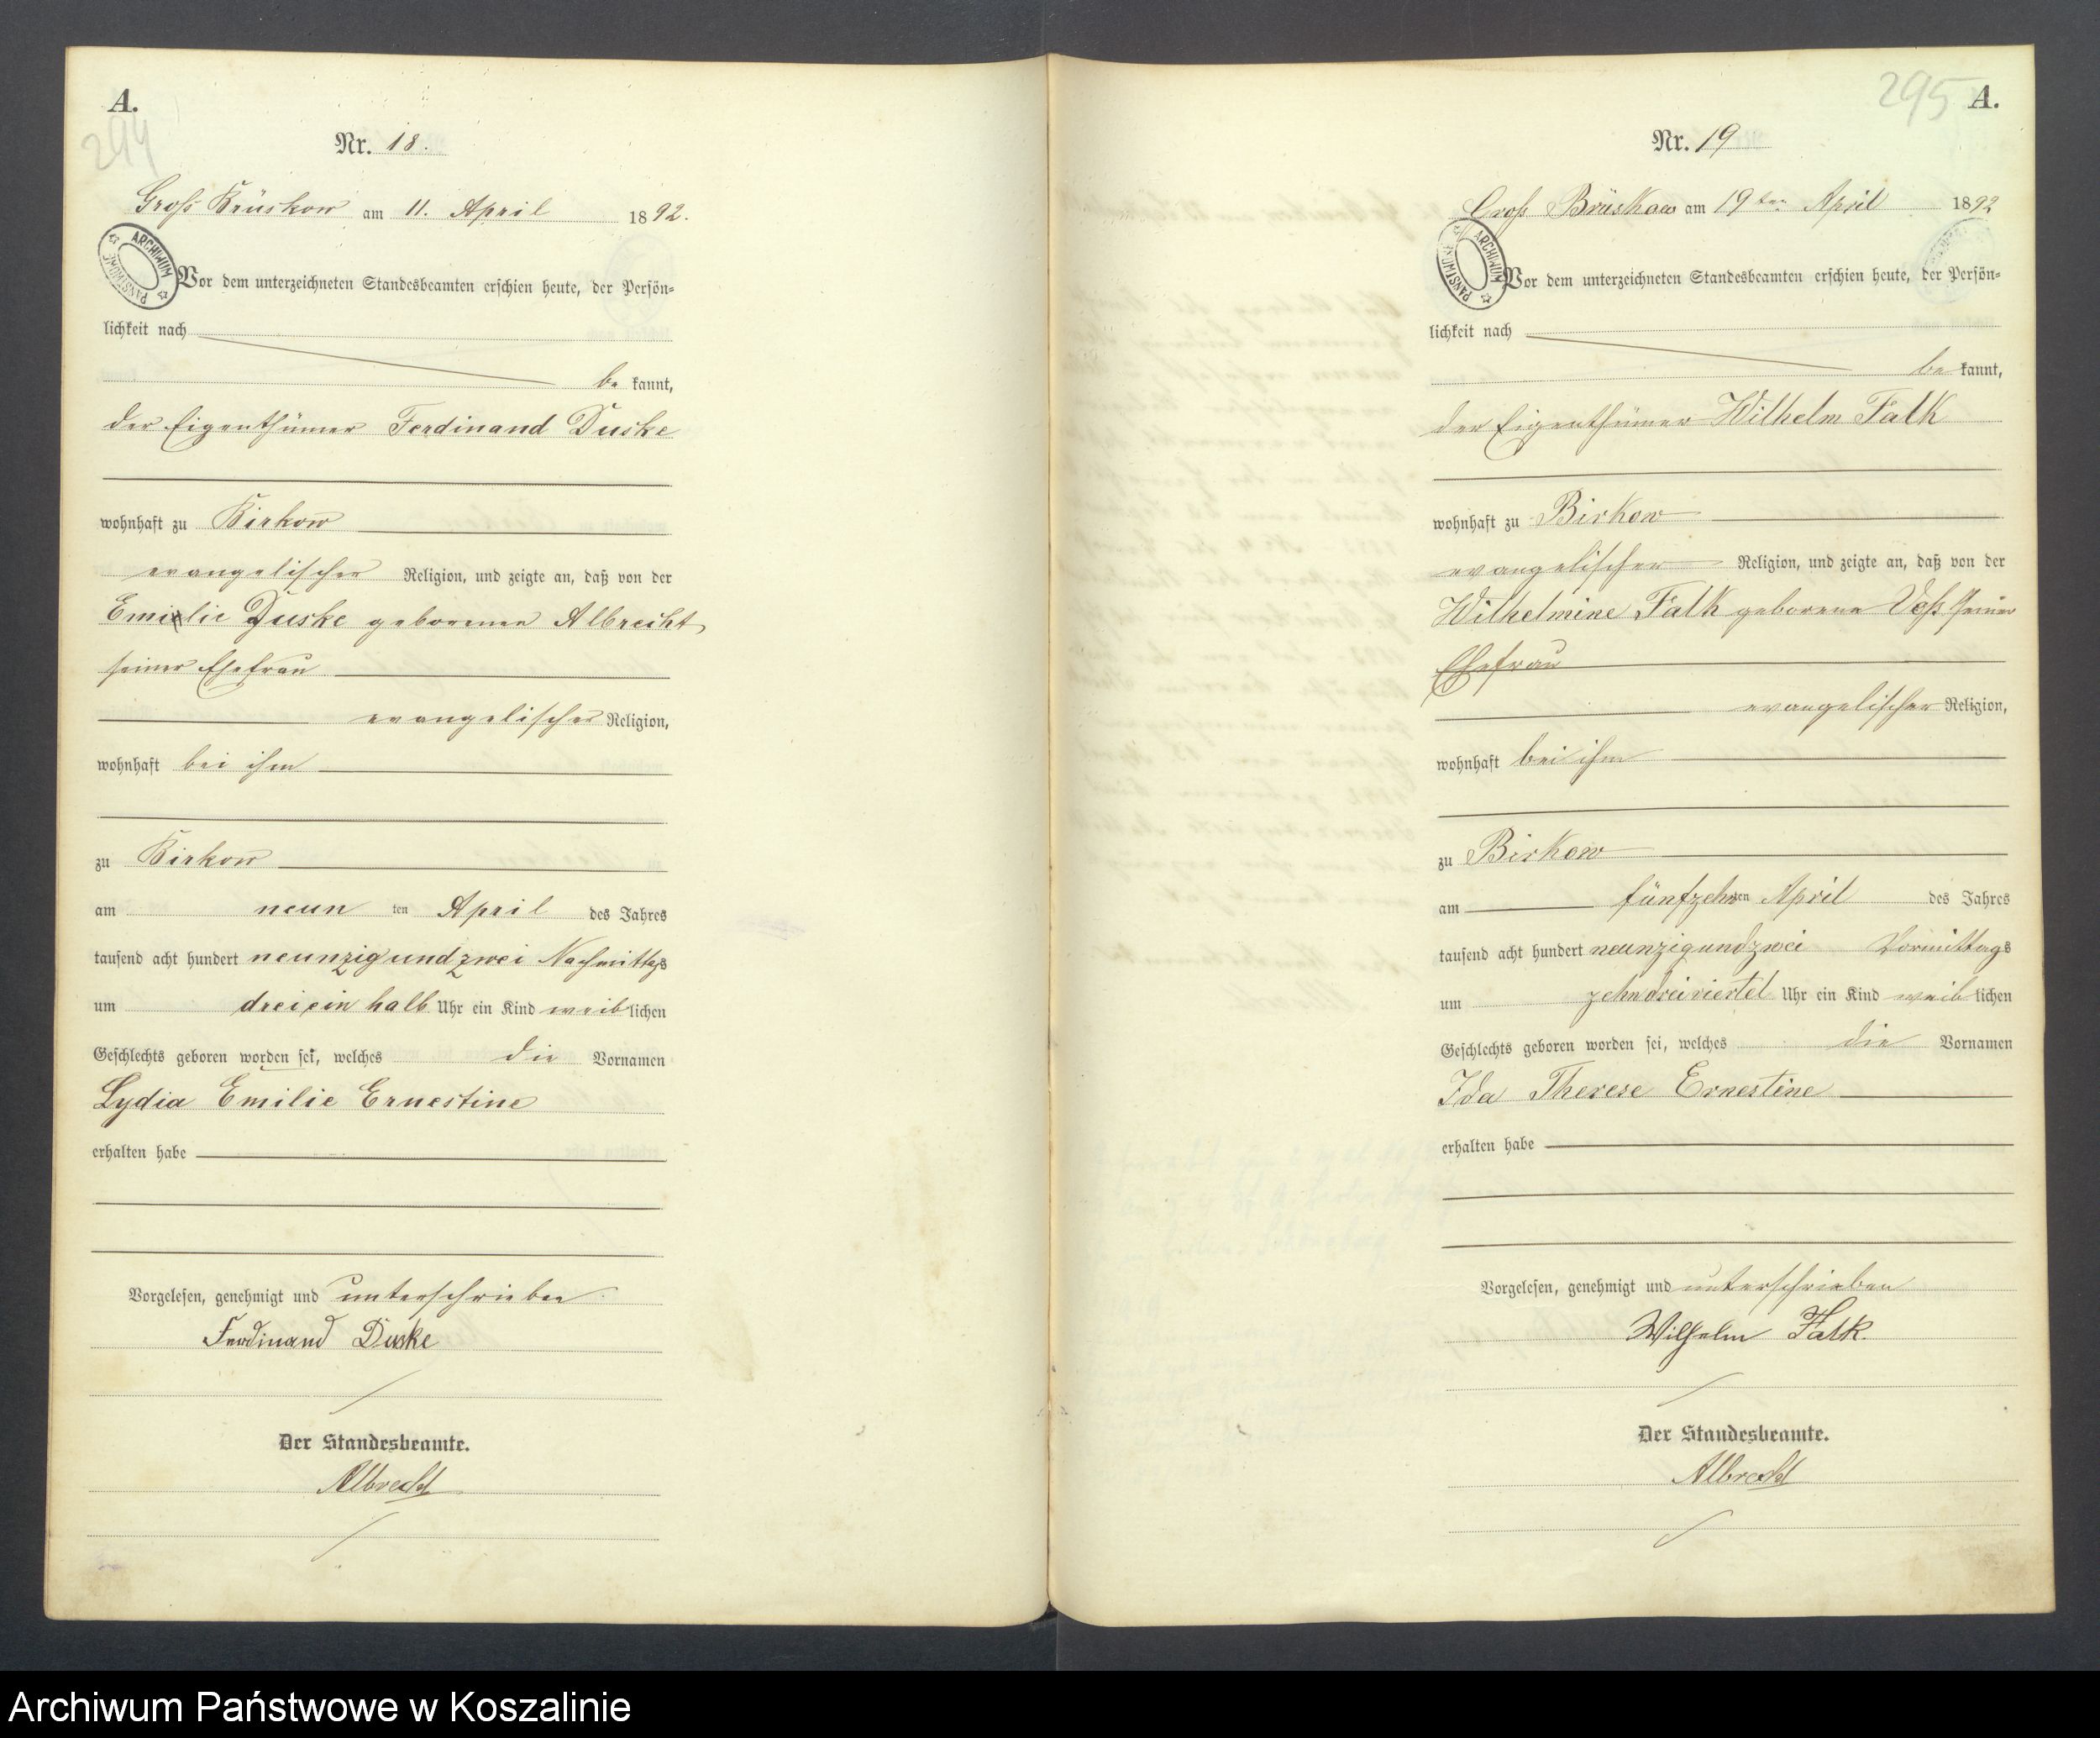 A.
294
Nr. 18.
Groß Brüskow am 11. April 1892.
ARCHIWUM PAŃSTWOWE
Vor dem unterzeichneten Standesbeamten erschien heute, der Persön=
lichkeit nach
be kannt,
der Eigenthümer Ferdinand Duske
wohnhaft zu Birkow
evangelischer Religion, und zeigte an, daß von der
Emilie Duske geborenen Albrecht,
seiner Ehefrau
evangelischer Religion,
wohnhaft bei ihm
zu Birkow
am neun ten April des Jahres
tausend acht hundert neunzig und zwei Nachmittags
um drei ein halb Uhr ein Kind weib lichen
Geschlechts geboren worden sei, welches die Vornamen
Lydia Emilie Ernestine
erhalten habe
Vorgelesen, genehmigt und unterschrieben
Ferdinand Duske
Der Standesbeamte.
Albrecht
295 A.
Nr. 19
Groß Brüskow am 19ten April 1892
ARCHIWUM PAŃSTWOWE
Vor dem unterzeichneten Standesbeamten erschien heute, der Persön=
lichkeit nach
be kannt,
der Eigenthümer Wilhelm Falk
wohnhaft zu Birkow
evangelischer Religion, und zeigte an, daß von der
Wilhelmine Falk geborene Voß seiner
Ehefrau
evangelischer Religion,
wohnhaft bei ihm
zu Birkow
am fünfzehn ten April des Jahres
tausend acht hundert neunzig und zwei Vormittags
um zehn dreiviertel Uhr ein Kind weib lichen
Geschlechts geboren worden sei, welches die Vornamen
Ida Therese Ernestine
erhalten habe
Vorgelesen, genehmigt und unterschrieben
Wilhelm Falk.
Der Standesbeamte.
Albrecht
Archiwum Państwowe w Koszalinie